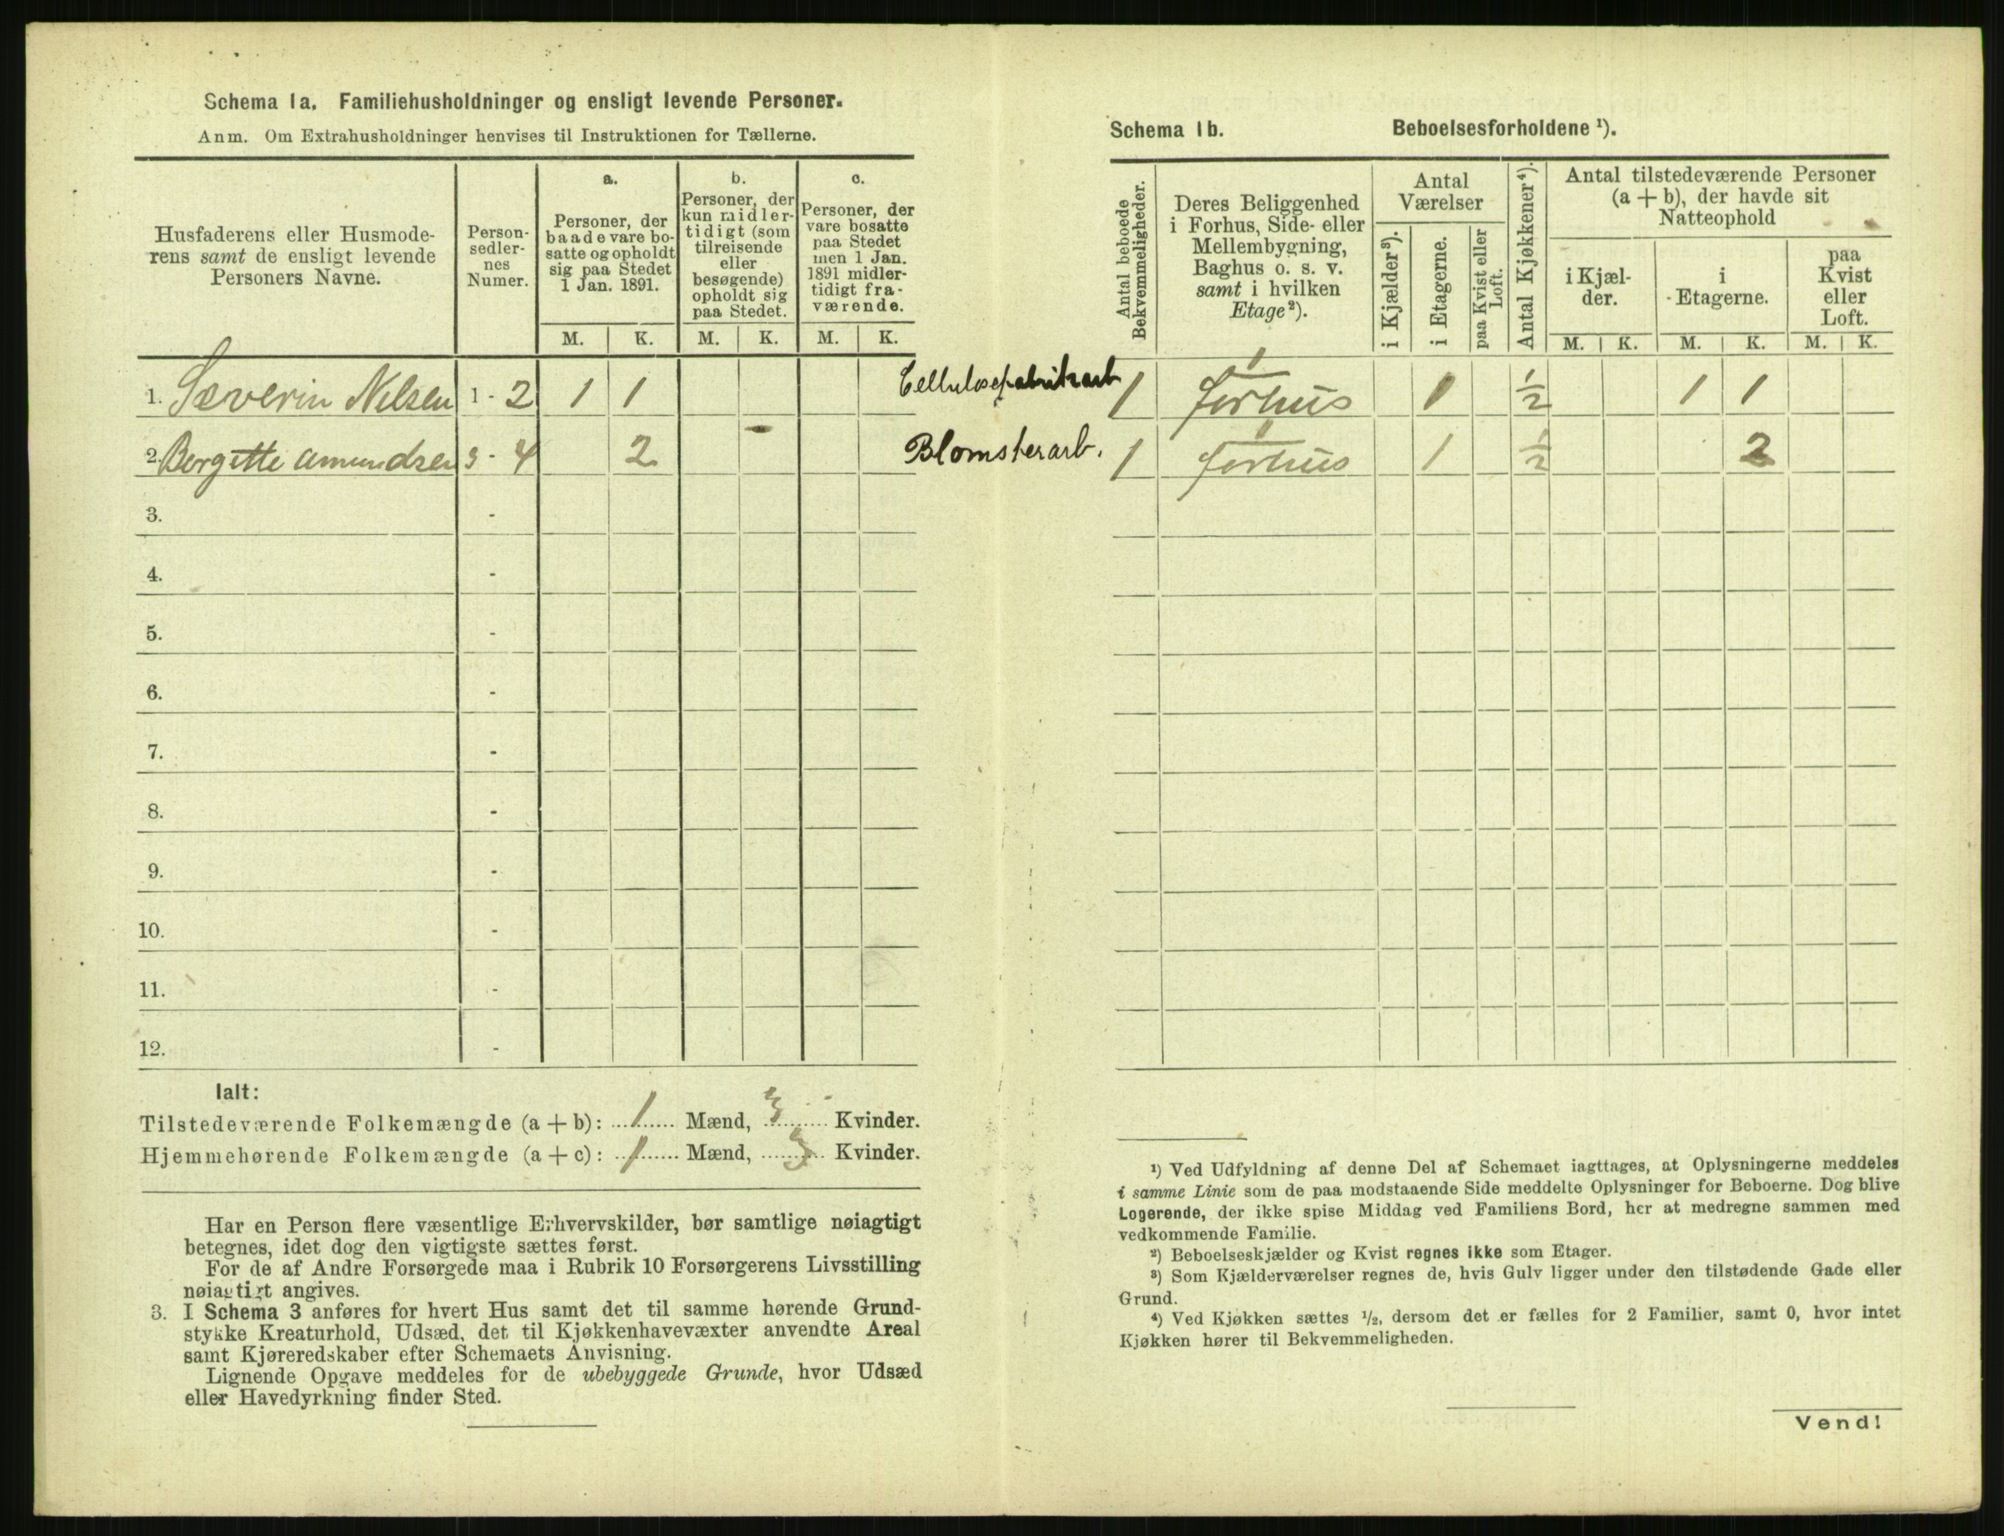 Schema 1a. Familiehusholdninger og ensligt levende Personer.
Anm. Om Extrahusholdninger henvises til Instruktionen for Tællerne.
Husfaderens eller Husmode-
rens samt de ensligt levende
Personers Navne.
Person-
sedler-
nes
Numer.
a.
Personer, der
baade vare bo-
satte og opholdt
sig paa Stedet
1 Jan. 1891.
b.
Personer, der
kun midler-
tidigt (som
tilreisende
eller
besøgende)
opholdt sig
paa Stedet.
c.
Personer, der
vare bosatte
paa Stedet
men 1 Jan.
1891 midler-
tidigt fra-
værende.
M. K. M. K. M. K.
1. Sæverin Nilsen 1 - 2 1 1 Cellulosefabrikarb
2. Bergitte Amundsen 3 - 4 2 Blomsterarb.
3. -
4. -
5. -
6. -
7. -
8. -
9. -
10. -
11. -
12. -
Ialt:
Tilstedeværende Folkemængde (a + b): 1 Mænd, 3 Kvinder.
Hjemmehørende Folkemængde (a + c): 1 Mænd, 3 Kvinder.
Har en Person flere væsentlige Erhvervskilder, bør samtlige nøiagtigt
betegnes, idet dog den vigtigste sættes først.
For de af Andre Forsørgede maa i Rubrik 10 Forsørgerens Livsstilling
nøiagtigt angives.
3. I Schema 3 anføres for hvert Hus samt det til samme hørende Grund-
stykke Kreaturhold, Udsæd, det til Kjøkkenhavevæxter anvendte Areal
samt Kjøreredskaber efter Schemaets Anvisning.
Lignende Opgave meddeles for de ubebyggede Grunde, hvor Udsæd
eller Havedyrkning finder Sted.
Schema 1b. Beboelsesforholdene ¹).
Antal beboede
Bekvemmeligheder.
Deres Beliggenhed
i Forhus, Side- eller
Mellembygning,
Baghus o. s. v.
samt i hvilken
Etage²).
Antal
Værelser
i Kjælder³).
i Etagerne.
paa Kvist eller
Loft.
Antal Kjøkkener⁴).
Antal tilstedeværende Personer
(a + b), der havde sit
Natteophold
i Kjæl-
der.
i
Etagerne.
paa
Kvist
eller
Loft.
M. K. M. K. M. K.
1 1 forhus 1 ½ 1 1
1 1 forhus 1 ½ 2
¹) Ved Udfyldning af denne Del af Schemaet iagttages, at Oplysningerne meddeles
i samme Linie som de paa modstaaende Side meddelte Oplysninger for Beboerne. Dog blive
Logerende, der ikke spise Middag ved Familiens Bord, her at medregne sammen med
vedkommende Familie.
²) Beboelseskjælder og Kvist regnes ikke som Etager.
³) Som Kjælderværelser regnes de, hvis Gulv ligger under den tilstødende Gade eller
Grund.
⁴) Ved Kjøkken sættes ½, dersom det er fælles for 2 Familier, samt 0, hvor intet
Kjøkken hører til Bekvemmeligheden.
Vend!